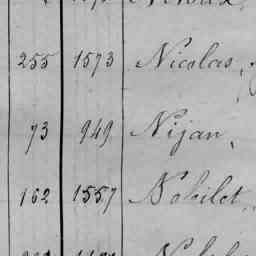 255 1573 Nicolas,
73 949 Nijan,
162 1557 Nobilet,